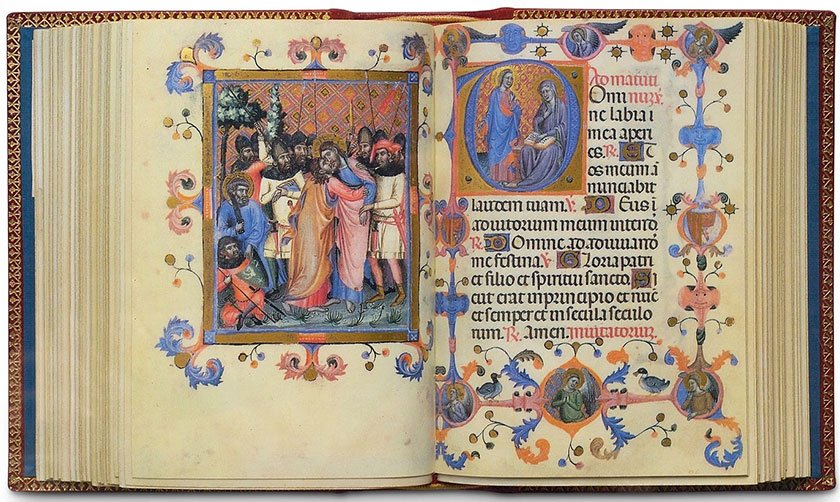 Ad matuti
Omi
ne labia
mea aperi
es. ℟. Et
os meum ā
nunciabit
laudem tuam ℣. Deus i
adiutorium meum intende
℟. Domine ad adiuvanō
me festina ℣. Gloria patri
et filio et spiritui sancto Si
cut erat in principio et nūc
et semper et in secula seculo
rum. ℟. Amen.